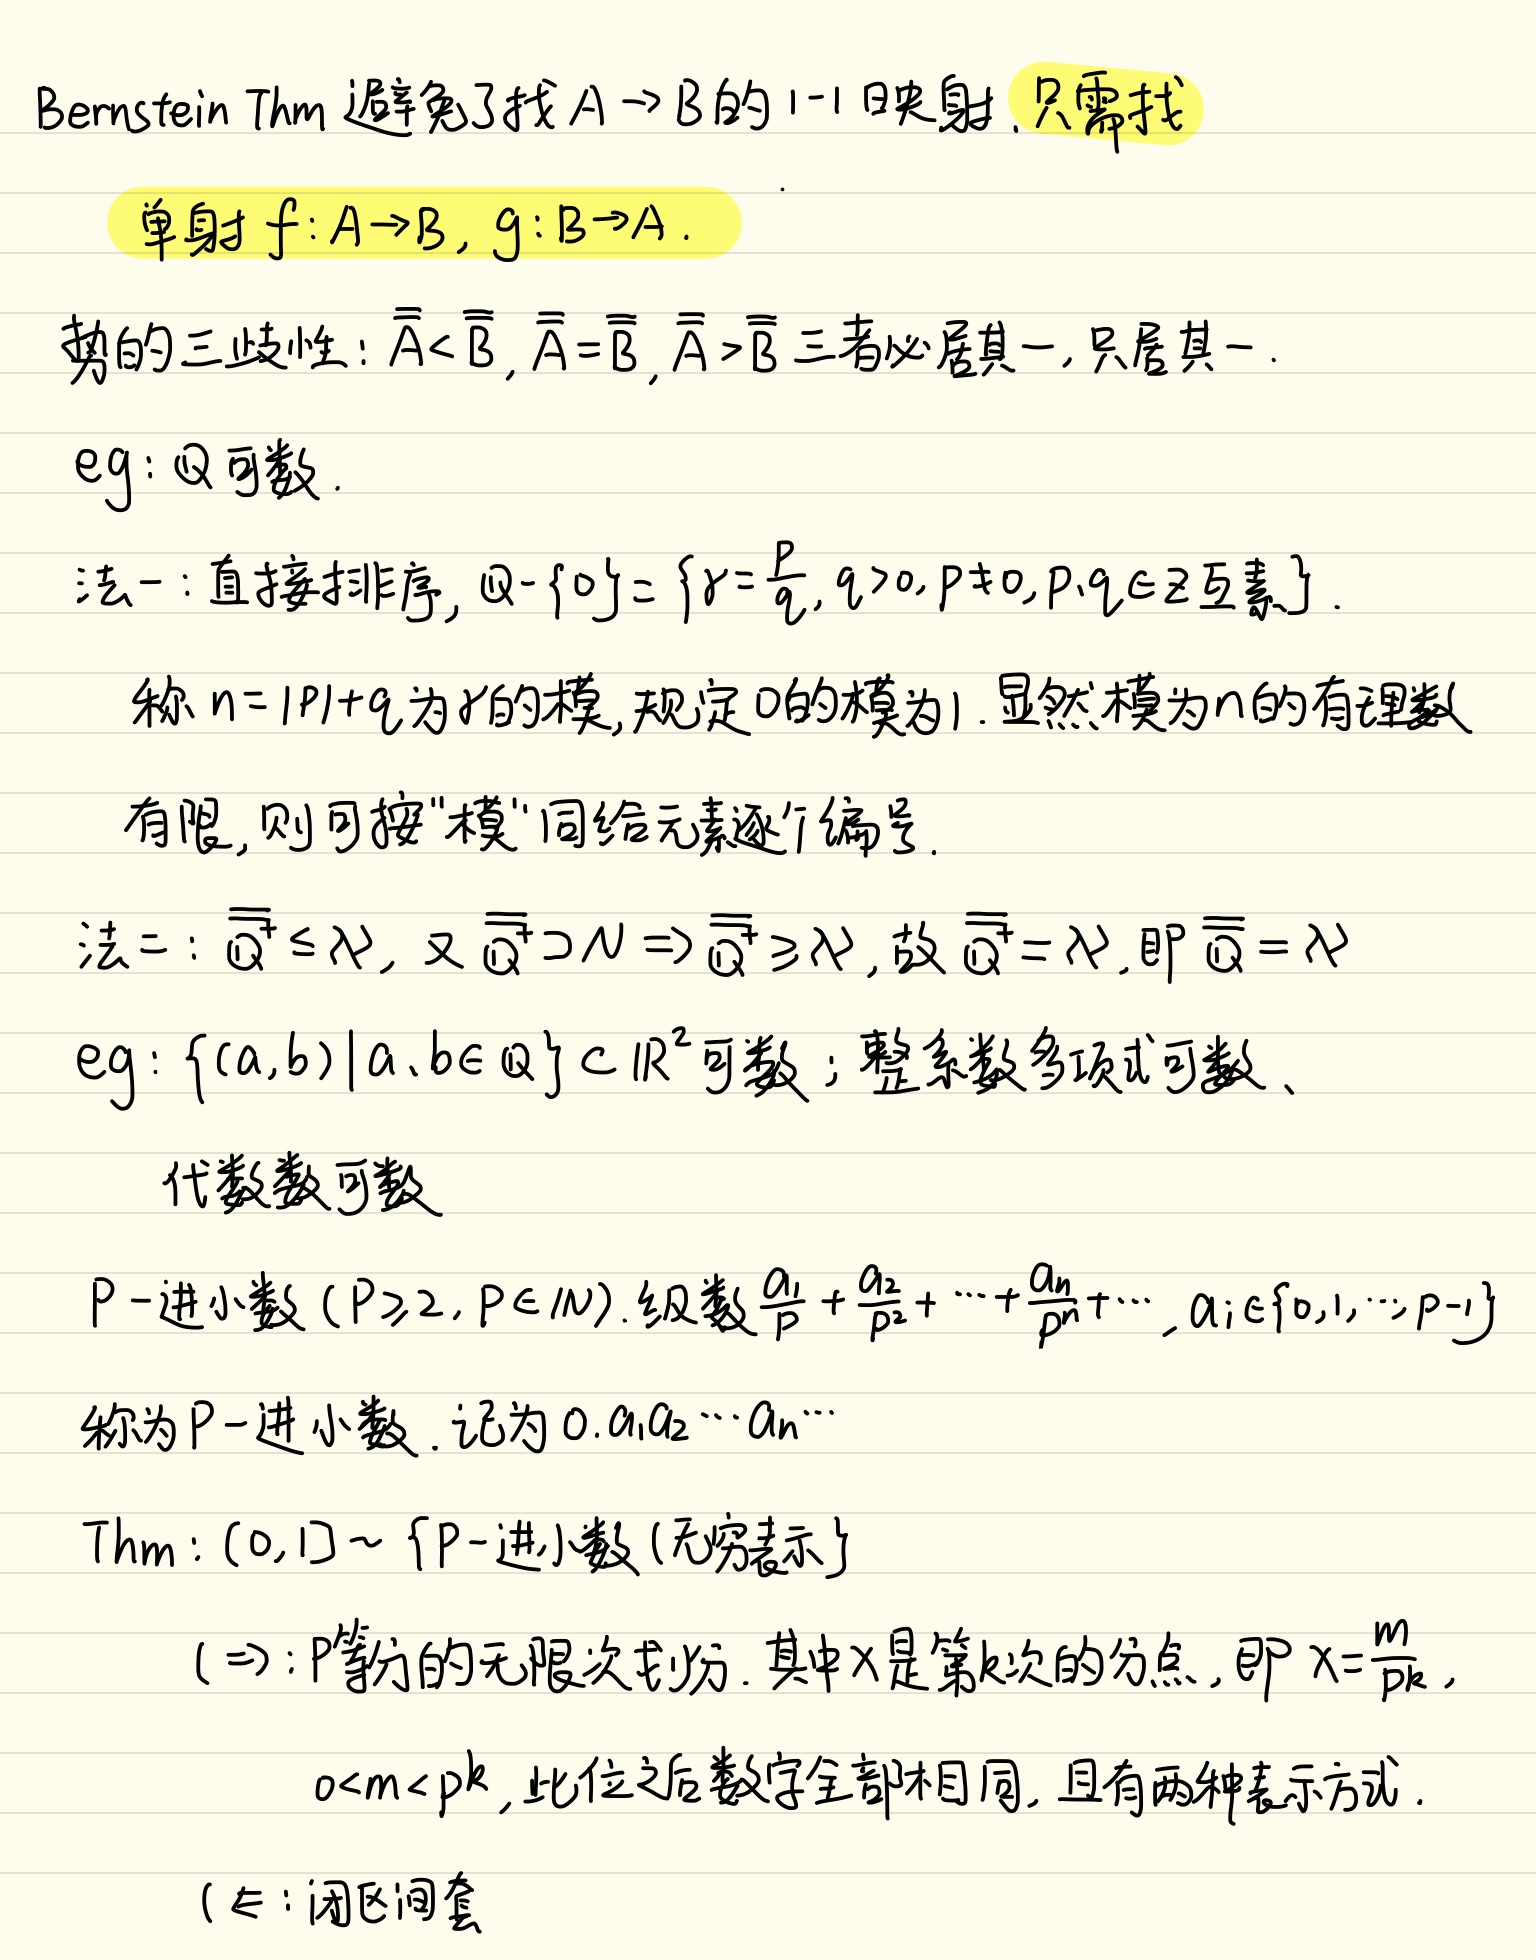 Bernstein Thm 避免了找 A→B的 1-1 映射. 只需找
单射 f: A→B, g: B→A.
势的三歧性: A̿ < B̿, A̿ = B̿, A̿ > B̿ 三者必居其一, 只居其一.
eg: ℚ可数.
法一: 直接排序, ℚ-{0} = {r = p/q, q>0, p≠0, p、q∈Z互素}.
称 n=|p|+q为r的模, 规定0的模为1. 显然模为n的有理数
有限, 则可按"模"同给元素逐个编号.
法二: ℚ̿⁺ ≤ λ, 又 ℚ̿⁺ ⊃ N ⇒ ℚ̿⁺ ≥ λ, 故 ℚ̿⁺ = λ, 即 ℚ̿ = λ
eg: {(a,b)|a、b∈ℚ} ⊂ ℝ² 可数; 整系数多项式可数、
代数数可数
P-进小数 (P≥2, P∈ℕ). 级数 a₁/p + a₂/p² + ··· + aₙ/pⁿ + ···, aᵢ∈{0,1,···,p-1}
称为P-进小数. 记为 0.a₁a₂···aₙ···
Thm: (0,1] ~ {P-进小数(无穷表示}
(⇒: P等分的无限次划分. 其中x是第k次的分点, 即 x = m/pᵏ,
0<m<pᵏ, 此位之后数字全部相同, 且有两种表示方式.
(⇐: 闭区间套